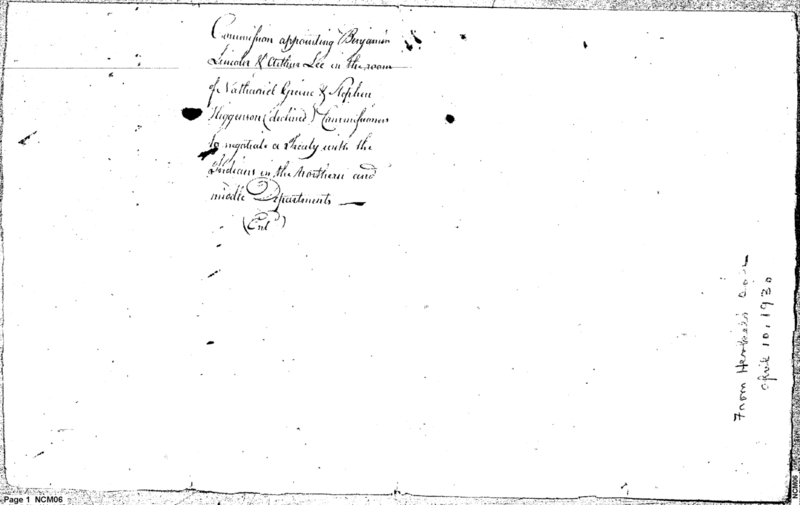 Commission appointing Benjamin
Lincoln & Arthur Lee in the room
of Nathaniel Greene & Stephen
Higginson (declined) Commissioners
to negotiate a Treaty with the
Indians in the Northern and
middle Departments —
(Entd)
From Heartman's
April 10, 1930
Page 1 NCM06
NCM06